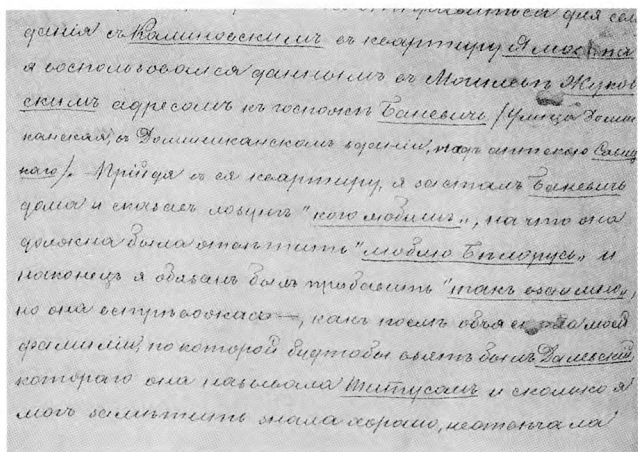 отправиться для сви
данія съ Калиновскимъ въ квартиру Ямонта
я воспользовался даннымъ въ Могилевѣ Жуков
скимъ адресомъ къ госпожѣ Баневичь /улица Домин
иканская, въ Доминиканскомъ зданіи, надъ аптекою Савиц
каго/. Прійдя въ ея квартиру, я засталъ Баневичь
дома и сказалъ лозунгъ "кого любишь„, на что она
должна была отвѣтить "люблю Бѣларусь„ и
наконецъ я обязанъ былъ прибавить "такъ взаимно„,
но она встрѣвожась —, какъ послѣ объяснила моей
фамиліи, по которой будтобы взятъ былъ Далевскій,
котораго она называла Титусомъ и сколько я
могъ замѣтить знала хорошо, неотвѣчала